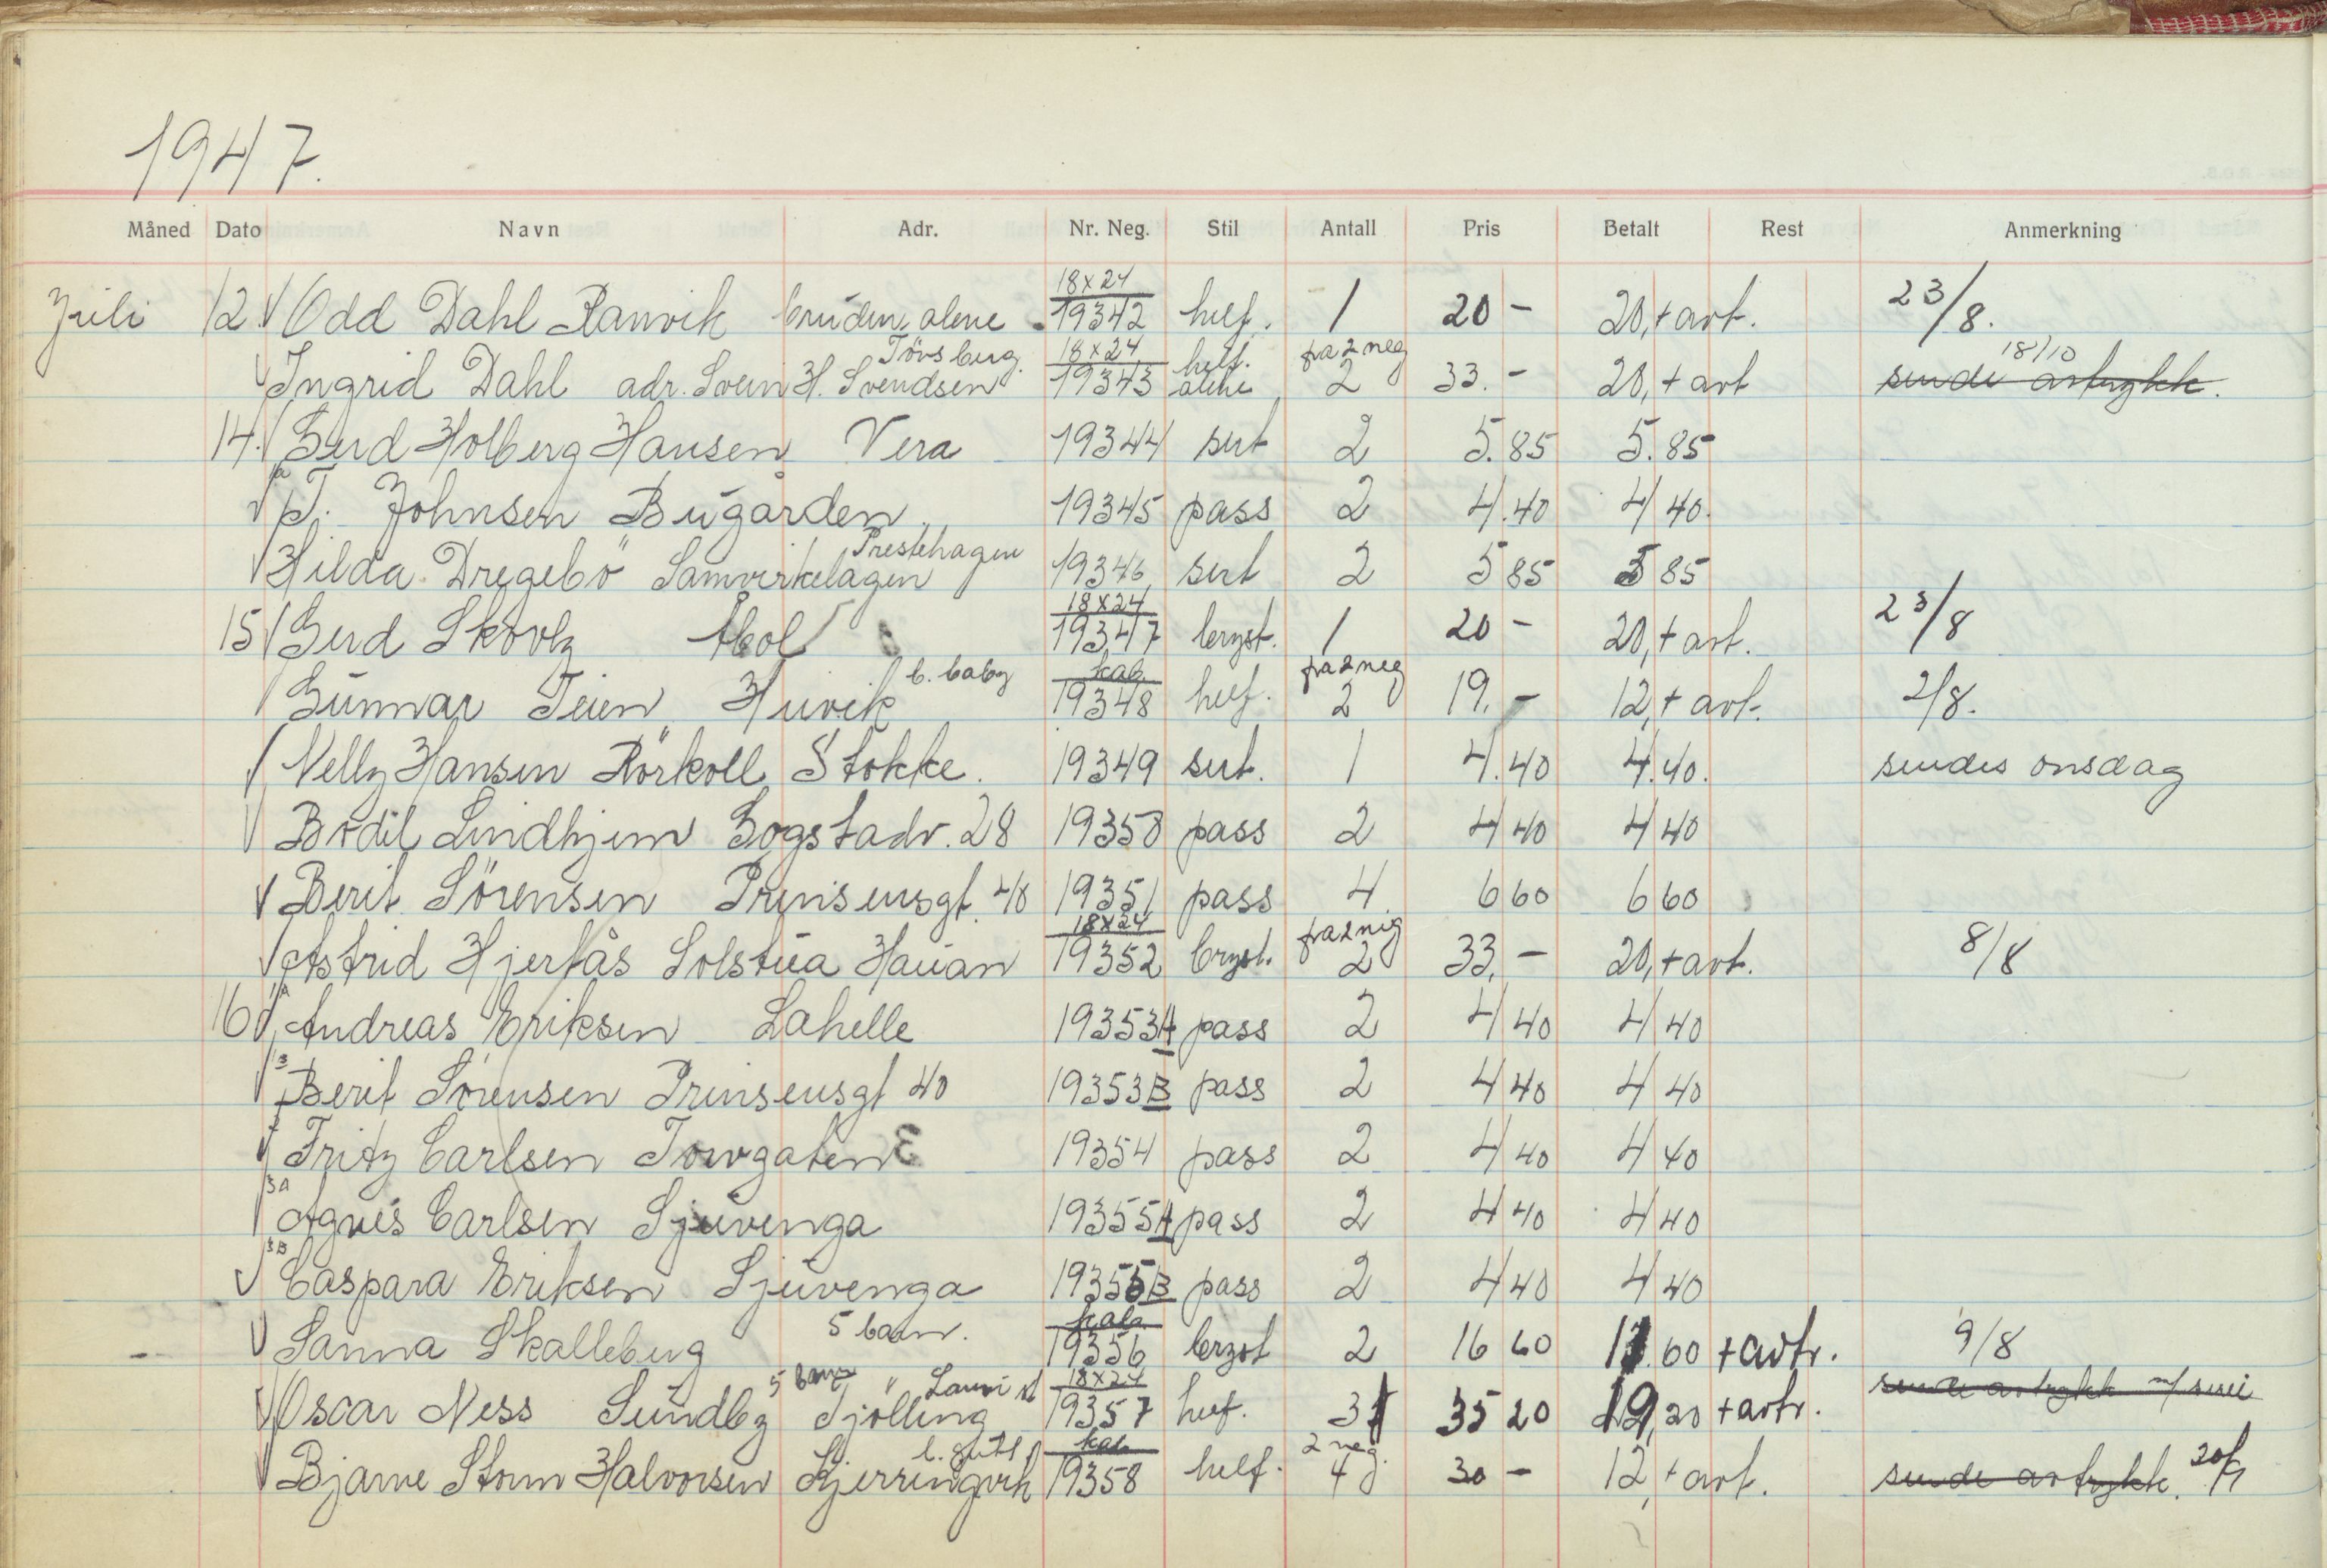 1947.
Måned Dato Navn Adr. Nr. Neg. Stil Antall Pris Betalt Rest Anmerkning
18x24
Juli 12. Odd Dahl Ranvik bruden alene 19342 helf. 1 20 - 20,+ avt. 23/8.
Tönsberg 18x24 helf. på 2 neg 18/10
Ingrid Dahl adr. Svein H. Svendsen 19343 alene 2 33.- 20,+ avt sende avtrykk.
14. Gerd Holberg Hansen Vera 19344 sert 2 5.85 5.85
T. Johnsen Bugården 19345 pass 2 4.40 4 40.
Prestehagen
Hilda Dregebö Samvirkelagen 19346 sert 2 5 85 5 85
18x24
15 Gerd Skovly 19347 bryst. 1 20 - 20,+ avt. 23/8
b. baby kab. på 2 neg
Gunnar Teien Huvik 19348 helf. 2 19.- 12,+ avt. 2/8.
Nelly Hansen Rörkoll Stokke. 19349 sert. 1 4.40 4.40. sendes onsdag
Bodil Lindhjem Bogstadv. 28 19350 pass 2 4 40 4 40
Berit Sörensen Prinsensgt. 40 19351 pass 4 6 60 6 60
18x24 på 2 neg
Astrid Hjertås Solstua Hauan 19352 bryst. 2 33,- 20,+ avt. 8/8
A
16 Andreas Eriksen Lahelle 19353A pass 2 4 40 4 40
B
Berit Sörensen Prinsensgt 40 19353B pass 2 4 40 4 40
Fritz Carlsen Torvgaten 19354 pass 2 4 40 4 40
3A
Agnes Carlsen Sjuvenga 19355A pass 2 4 40 4 40
3B
Caspara Eriksen Sjuvenga 19355B pass 2 4 40 4 40
5 barn. kab.
Sanna Skalleberg 19356 bryst 2 16 60 60 + avtr. 9/8
5 barn 18x24
Oscar Ness Sundby Tjölling 19357 helf. 3 35 20 19,20 + avtr. sende avtrykk
b. gutt kab 2 neg.
Bjarne Storm Halvorsen Kjerringvik 19358 helf. 4 30 - 12,+ avt. sende avtrykk.